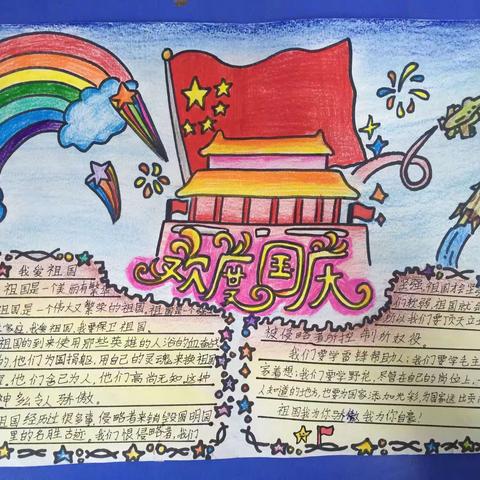 欢度国庆
我爱祖国
祖国是一个美丽而繁
祖国是一个伟大又繁荣的祖国,祖国是
我爱祖国,我要保卫祖国。
祖国的到来使用那些英雄的人治的血奋战
的,他们为国捐躯,用自己的灵魂来换祖国
他们舍己为人,他们高尚无知,这种
神多么令人骄傲。
祖国经历过很多事,侵略者来销毁圆明园
里的名胜古迹,我们恨侵略者,我们
坚强,祖国
们软弱,祖国就
所以我们要顶天立
被侵略者所控制所奴役。
我们要学雷锋帮助人;我们要学毛主
客着想;我们要学野花,尽管在自己的岗位上,
人知道的地方,也要为国家添加光彩,为国家送出
祖国我为你骄傲我为你自豪!